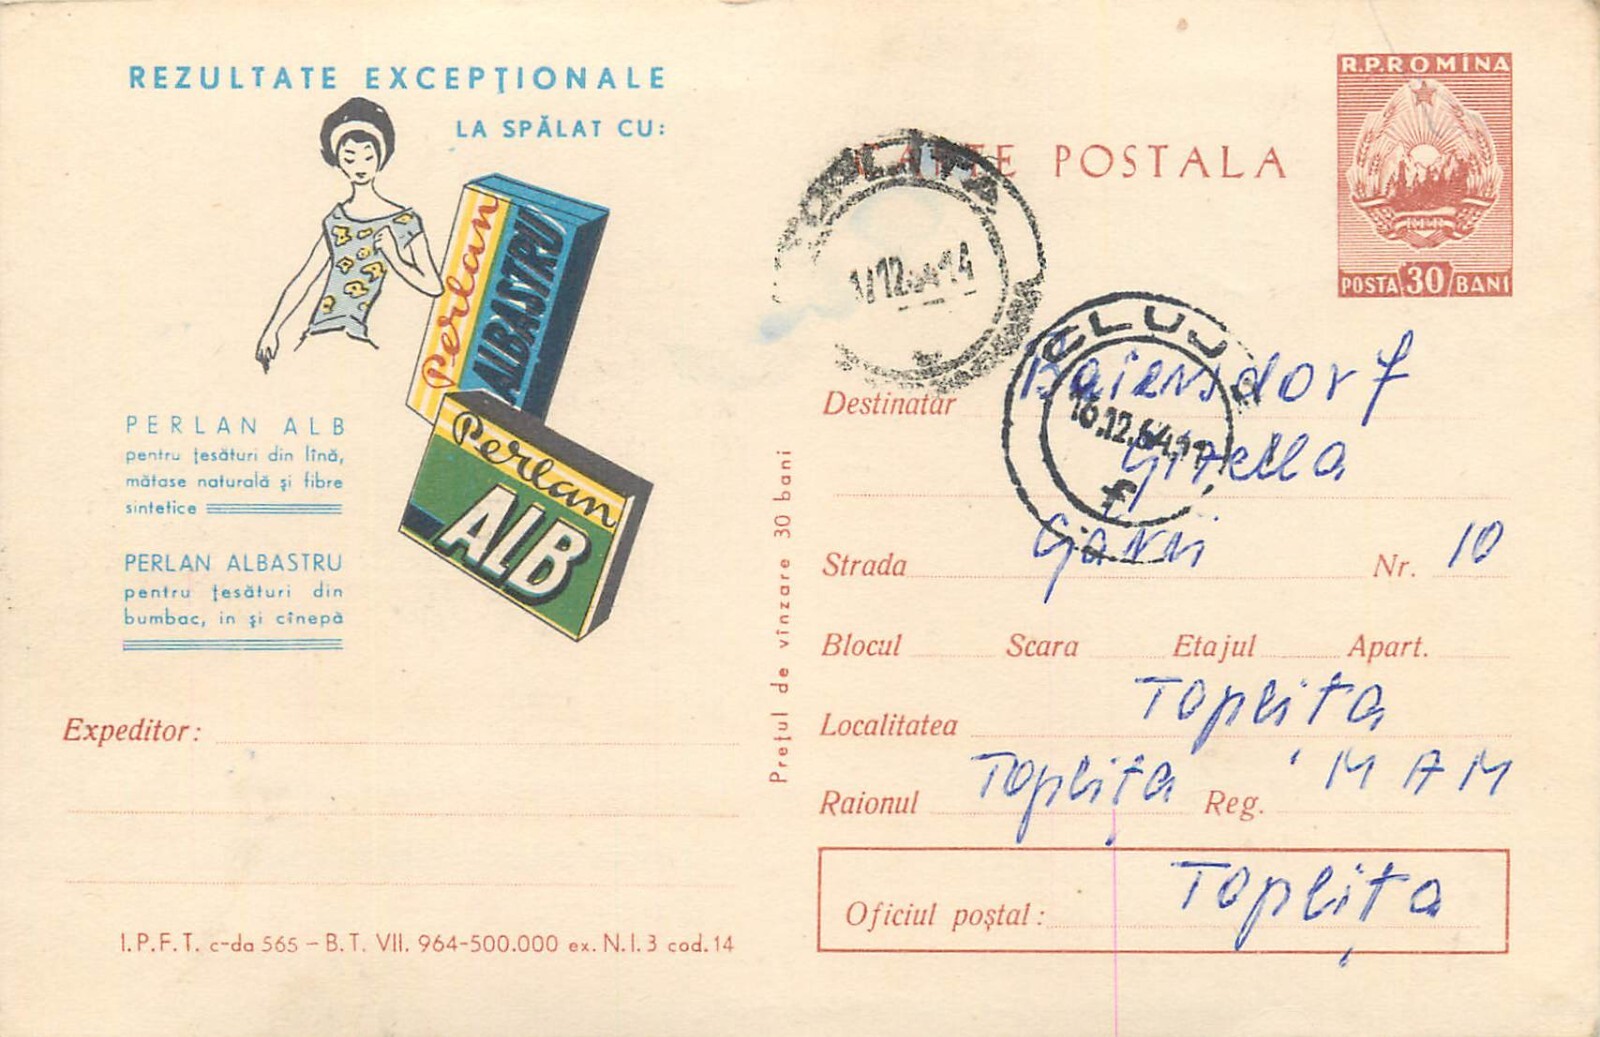 REZULTATE EXCEPȚIONALE
LA SPĂLAT CU:
Perlan
ALBASTRU
Perlan
ALB
PERLAN ALB
pentru țesături din lînă,
mătase naturală și fibre
sintetice
PERLAN ALBASTRU
pentru țesături din
bumbac, in și cînepă
Expeditor:
I.P.F.T. c-da 565 – B.T. VII. 964-500.000 ex. N.I. 3 cod. 14
Prețul de vînzare 30 bani
CARTE POSTALA
R.P.ROMINA
POSTA 30 BANI
TOPLITA
CLUJ
16.12.64
Destinatar
Strada
Nr. 10
Blocul Scara Etajul Apart.
Localitatea Toplita
Raionul Toplița Reg. MAM
Oficiul poștal: Toplița